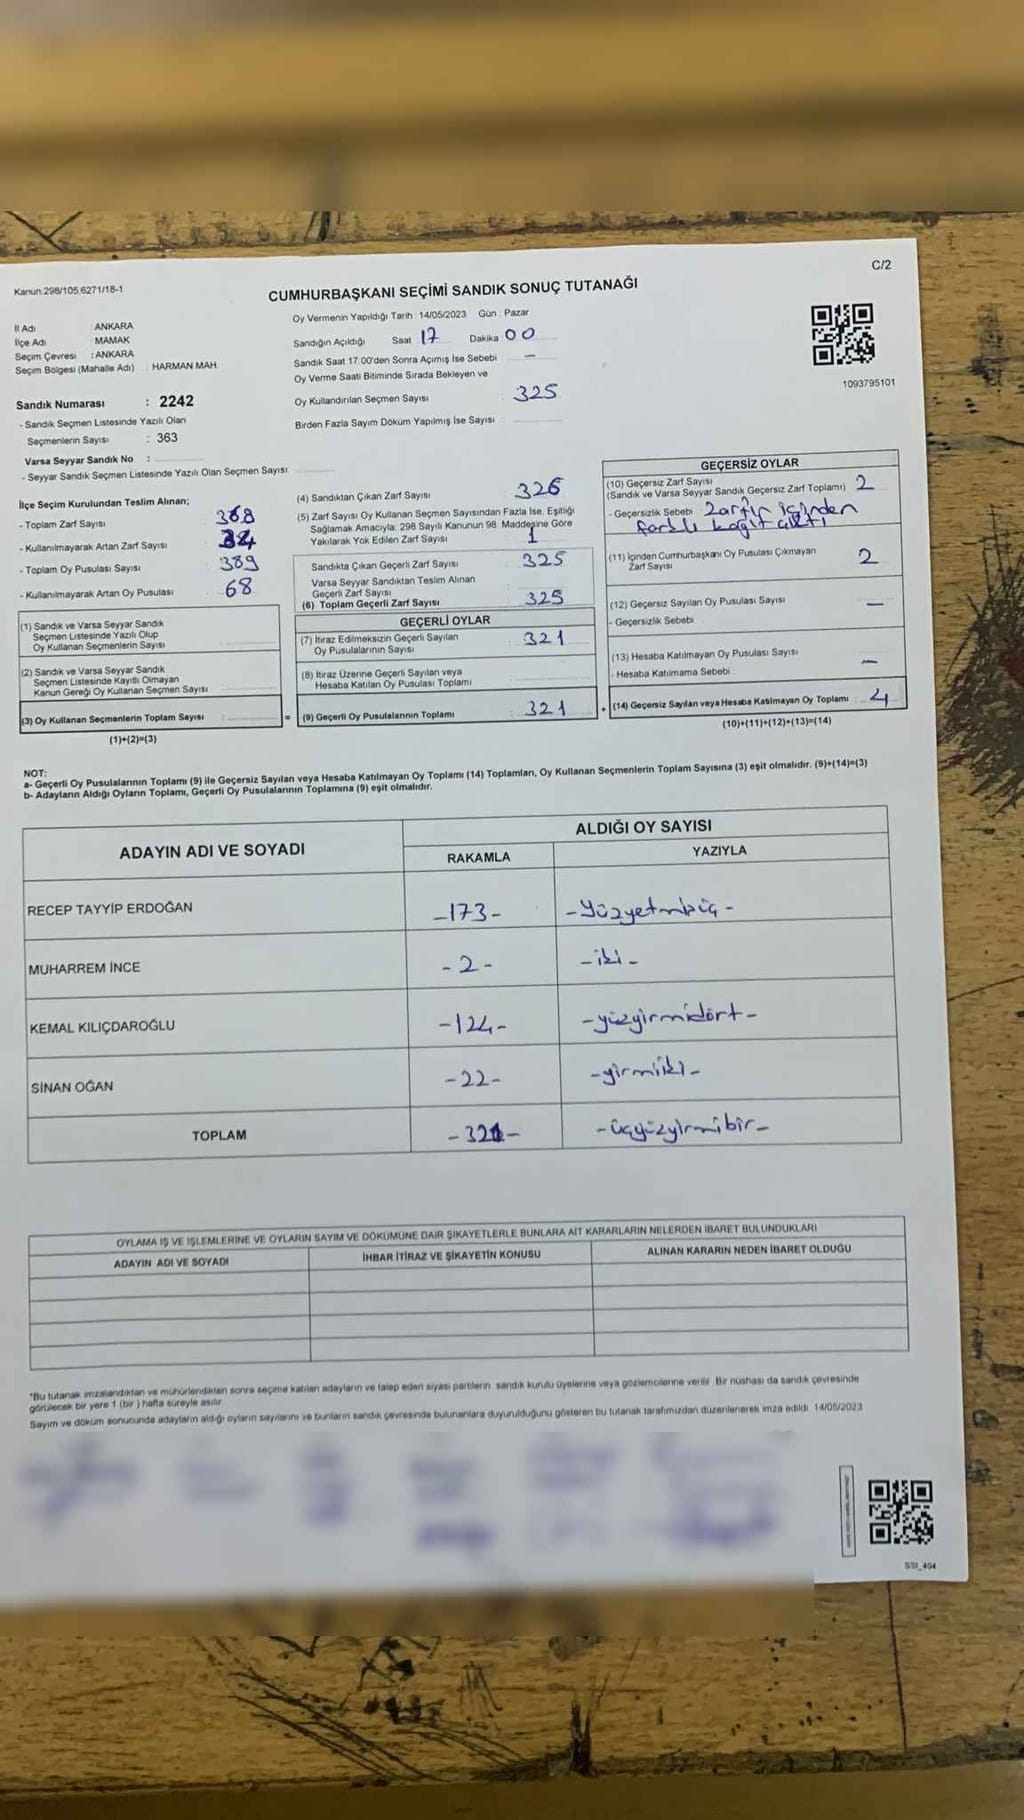 C/2
Kanun:298/105,6271/18-1
CUMHURBAŞKANI SEÇİMİ SANDIK SONUÇ TUTANAĞI
İl Adı ANKARA
İlçe Adı MAMAK
Seçim Çevresi : ANKARA
Seçim Bölgesi (Mahalle Adı) : HARMAN MAH
Sandık Numarası : 2242
- Sandık Seçmen Listesinde Yazılı Olan
Seçmenlerin Sayısı : 363
Varsa Seyyar Sandık No :
- Seyyar Sandık Seçmen Listesinde Yazılı Olan Seçmen Sayısı
Oy Vermenin Yapıldığı Tarih : 14/05/2023 Gün : Pazar
Sandığın Açıldığı Saat 17 Dakika 00
Sandık Saat 17:00'den Sonra Açımış İse Sebebi -
Oy Verme Saati Bitiminde Sırada Bekleyen ve
Oy Kullandırılan Seçmen Sayısı : 325
Birden Fazla Sayım Döküm Yapılmış İse Sayısı
1093795101
İlçe Seçim Kurulundan Teslim Alınan;
- Toplam Zarf Sayısı 368
- Kullanılmayarak Artan Zarf Sayısı
- Toplam Oy Pusulası Sayısı : 389
- Kullanılmayarak Artan Oy Pusulası : 68
(1) Sandık ve Varsa Seyyar Sandık
Seçmen Listesinde Yazılı Olup
Oy Kullanan Seçmenlerin Sayısı
(2) Sandık ve Varsa Seyyar Sandık
Seçmen Listesinde Kayıtlı Olmayan
Kanun Gereği Oy Kullanan Seçmen Sayısı
(3) Oy Kullanan Seçmenlerin Toplam Sayısı :
(1)+(2)=(3)
(4) Sandıktan Çıkan Zarf Sayısı : 326
(5) Zarf Sayısı Oy Kullanan Seçmen Sayısından Fazla İse, Eşitliği
Sağlamak Amacıyla, 298 Sayılı Kanunun 98. Maddesine Göre
Yakılarak Yok Edilen Zarf Sayısı 1
Sandıkta Çıkan Geçerli Zarf Sayısı : 325
Varsa Seyyar Sandıktan Teslim Alınan
Geçerli Zarf Sayısı
(6) Toplam Geçerli Zarf Sayısı : 325
GEÇERLİ OYLAR
(7) İtiraz Edilmeksizin Geçerli Sayılan
Oy Pusulalarının Sayısı : 321
(8) İtiraz Üzerine Geçerli Sayılan veya
Hesaba Katılan Oy Pusulası Toplamı
= (9) Geçerli Oy Pusulalarının Toplamı : 321
GEÇERSİZ OYLAR
(10) Geçersiz Zarf Sayısı
(Sandık ve Varsa Seyyar Sandık Geçersiz Zarf Toplamı) : 2
- Geçersizlik Sebebi Zarfın içinden
farklı kağıt çıktı
(11) İçinden Cumhurbaşkanı Oy Pusulası Çıkmayan
Zarf Sayısı 2
(12) Geçersiz Sayılan Oy Pusulası Sayısı -
- Geçersizlik Sebebi
(13) Hesaba Katılmayan Oy Pusulası Sayısı -
- Hesaba Katılmama Sebebi :
+ (14) Geçersiz Sayılan veya Hesaba Katılmayan Oy Toplamı : 4
(10)+(11)+(12)+(13)=(14)
NOT:
a- Geçerli Oy Pusulalarının Toplamı (9) ile Geçersiz Sayılan veya Hesaba Katılmayan Oy Toplamı (14) Toplamları, Oy Kullanan Seçmenlerin Toplam Sayısına (3) eşit olmalıdır. (9)+(14)=(3)
b- Adayların Aldığı Oyların Toplamı, Geçerli Oy Pusulalarının Toplamına (9) eşit olmalıdır.
ADAYIN ADI VE SOYADI ALDIĞI OY SAYISI
RAKAMLA YAZIYLA
RECEP TAYYİP ERDOĞAN -173- -Yüzyetmişüç-
MUHARREM İNCE -2- -iki-
KEMAL KILIÇDAROĞLU -124- -yüzyirmidört-
SİNAN OĞAN -22- -yirmiiki-
TOPLAM -321- -üçyüzyirmibir-
OYLAMA İŞ VE İŞLEMLERİNE VE OYLARIN SAYIM VE DÖKÜMÜNE DAİR ŞİKAYETLERLE BUNLARA AİT KARARLARIN NELERDEN İBARET BULUNDUKLARI
ADAYIN ADI VE SOYADI İHBAR İTİRAZ VE ŞİKAYETİN KONUSU ALINAN KARARIN NEDEN İBARET OLDUĞU
*Bu tutanak imzalandıktan ve mühürlendikten sonra seçime katılan adayların ve talep eden siyasi partilerin sandık kurulu üyelerine veya gözlemcilerine verilir. Bir nüshası da sandık çevresinde
görülecek bir yere 1 (bir) hafta süreyle asılır
Sayım ve döküm sonucunda adayların aldığı oyların sayılarını ve bunların sandık çevresinde bulunanlara duyurulduğunu gösteren bu tutanak tarafımızdan düzenlenerek imza edildi. 14/05/2023
SSI_404